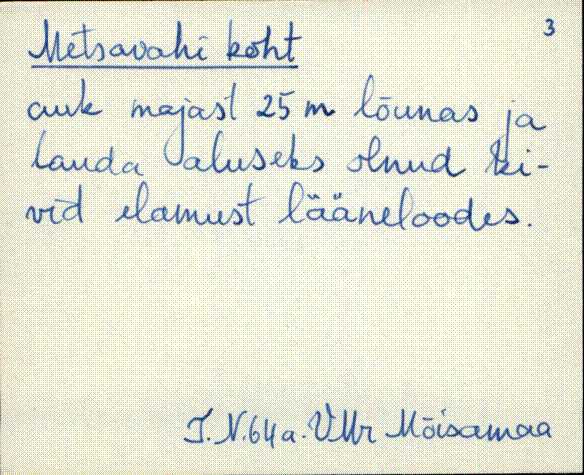 3
Metsavahi koht
auk majast 25 m lõunas ja
lauda aluseks olnud ki-
vid elamust lääneloodes.
I.N.64a. VMr Mõisamaa